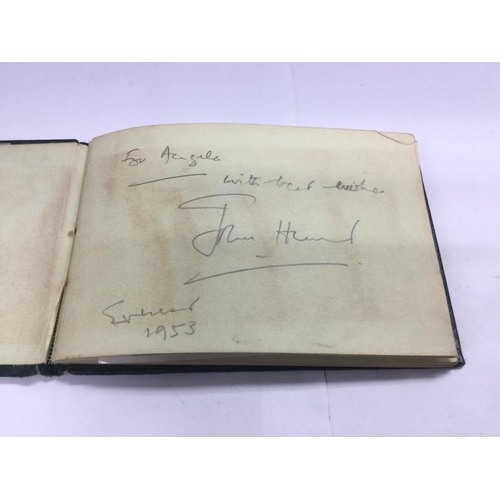 For Angela
with best wishes
John Hunt
Everest
1953